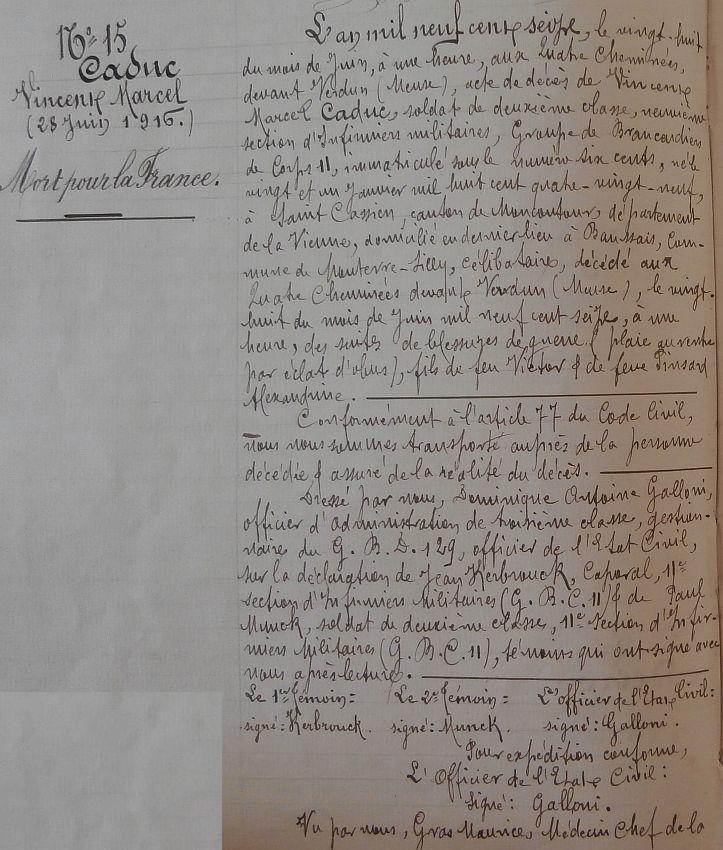 N° 15
Caduc
Vincent Marcel
(28 Juin 1916.)
Mort pour la France.
L'an mil neuf cent seize, le vingt-huit
du mois de Juin, à une heure, aux Quatre Cheminées,
devant Verdun (Meuse), acte de décès de Vincent
Marcel Caduc, soldat de deuxième classe, neuvième
section d'Infirmiers militaires, Groupe de Brancardiers
de Corps 11, immatriculé sous le numéro six cents, né le
vingt et un Janvier mil huit cent quatre-vingt-neuf,
à Saint Cassien, canton de Moncontour, département
de la Vienne, domicilié en dernier lieu à Baussais, Com-
mune de Monterre-Silly, célibataire, décédé aux
Quatre Cheminées devant Verdun (Meuse), le vingt-
huit du mois de Juin mil neuf cent seize, à une
heure, des suites de blessures de guerre (plaie au ventre
par éclat d'obus), fils de feu Victor & de feue Pinsard
Alexandrine.
Conformément à l'article 77 du Code Civil,
nous nous sommes transporté auprès de la personne
décédée & assuré de la réalité du décès.
Dressé par nous, Dominique Antoine Galloni,
officier d'administration de troisième classe, gestion-
naire du G. B. D. 129, officier de l'Etat Civil,
sur la déclaration de Jean Kerbrouck, Caporal, 11e
section d'Infirmiers Militaires (G. B. C. 11) & de Paul
Munck, soldat de deuxième classe, 11e Section d'Infir-
miers Militaires (G. B. C. 11), témoins qui ont signé avec
nous après lecture.
Le 1er Témoin: Le 2e Témoin: L'officier de l'Etat Civil:
signé: Kerbrouck. signé: Munck. signé: Galloni.
Pour expédition conforme,
L'Officier de l'Etat Civil:
Signé: Galloni.
Vu par nous, Gras Maurice, Médecin Chef de la